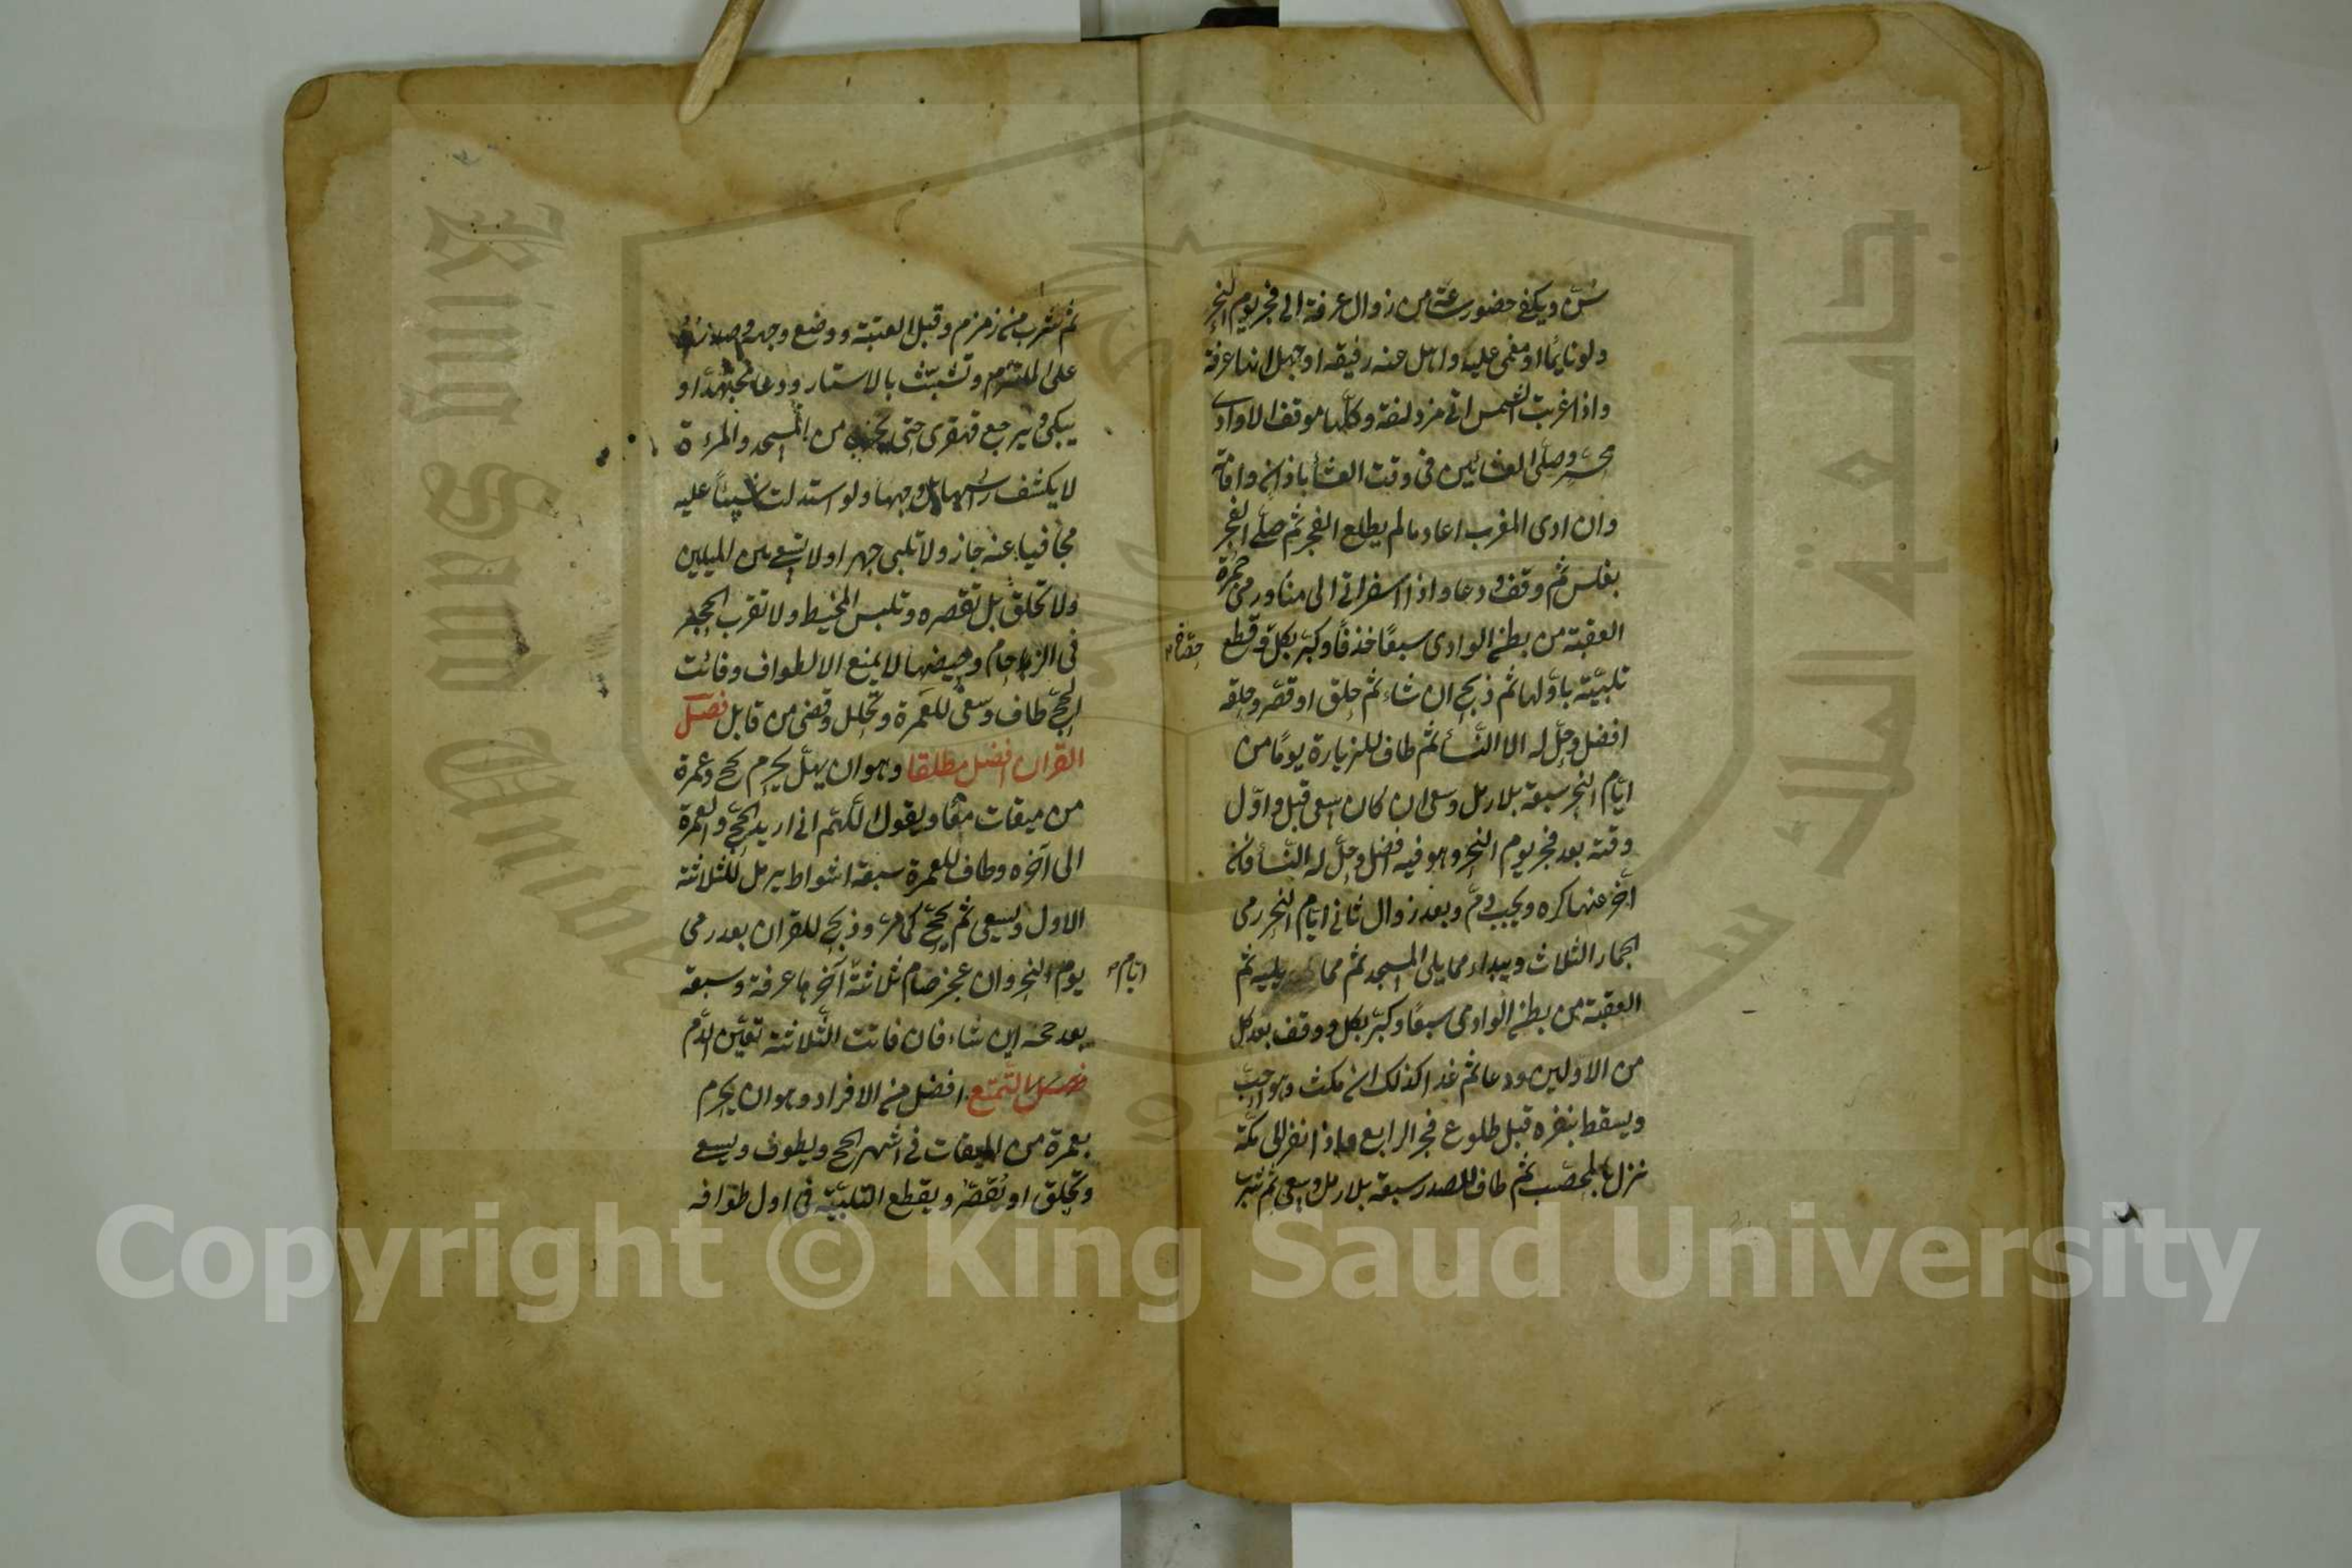 سن ويكفي حضور ساعة من زوال عرفة الى فجر يوم النحر
ولو نايما او مغمى عليه واهل عنه رفيقه او جهل انها عرفة
واذا غربت الشمس اتى مزدلفة وكلها موقف الا وادى
محسر وصلى العشائين في وقت العشأ باذان واقامة
وان ادى المغرب اعاد ما لم يطلع الفجر ثم صلى الفجر
بغلس ثم وقف ودعا واذا اسفر اتى الى منا ورمى جمرة
العقبة من بطن الوادى سبعًا خذفًا وكبر بكل وقطع
تلبيته باولها ثم ذبح ان شاء ثم حلق او قصر وحلقه
افضل وحل له الا النسأ ثم طاف للزيارة يومًا من
ايام النحر سبعة بلا رمل وسعى ان كان سعى قبل واول
وقته بعد فجر يوم النحر وهو فيه افضل وحل له النسأ فان
اخر عنها كره ويجب دم وبعد زوال ثاني ايام النحر رمى
الجمار الثلاث ويبداء مما يلى المسجد ثم مما يليه ثم
العقبة من بطن الوادى سبعًا وكبر بكل ووقف بعد كل
من الاولين ودعا ثم غدا كذلك ان مكث وهو احب
ويسقط بنفره قبل طلوع فجر الرابع واذا نفر الى مكة
نزل بالمحصب ثم طاف للصدر سبعة بلا رمل وسعى ثم
ثم شرب من زمزم وقبل العتبة ووضع وجهه وصدره
على الملتزم وتشبث بالاستار ودعا مجتهدا و
يبكى ويرجع قهقرى حتى يخرج من المسجد والمرءة
لا يكشف رأسها بل وجهها ولو استدلت شيئًا عليه
مجافيا عنه جاز ولا تلبى جهرا ولا تسعى بين الميلين
ولا تحلق بل تقصره وتلبس المخيط ولا تقرب الحجر
في الزحام وحيضها لا يمنع الا الطواف وفائت
الحج طاف وسعى للعمرة وتحلل وقضى من قابل فصل
القران افضل مطلقا وهو ان يهل يحرم بحج وعمرة
من ميقات معًا ويقول اللهم اني اريد الحج والعمرة
الى آخره وطاف للعمرة سبعة اشواط يرمل للثلاثة
الاول ويسعى ثم يحج كما مر وذبح للقران بعد رمى
ايام
يوم النحر وان عجز صام ثلاثة آخرها عرفة وسبعة
بعد حجه اين شاء فان فاتت الثلاثة تعين الدم
فصل التمتع افضل من الافراد وهو ان يحرم
بعمرة من الميقات في اشهر الحج ويطوف ويسعى
ويحلق او يقصر ويقطع التلبية في اول طوافه
King Saud University
Copyright © King Saud University